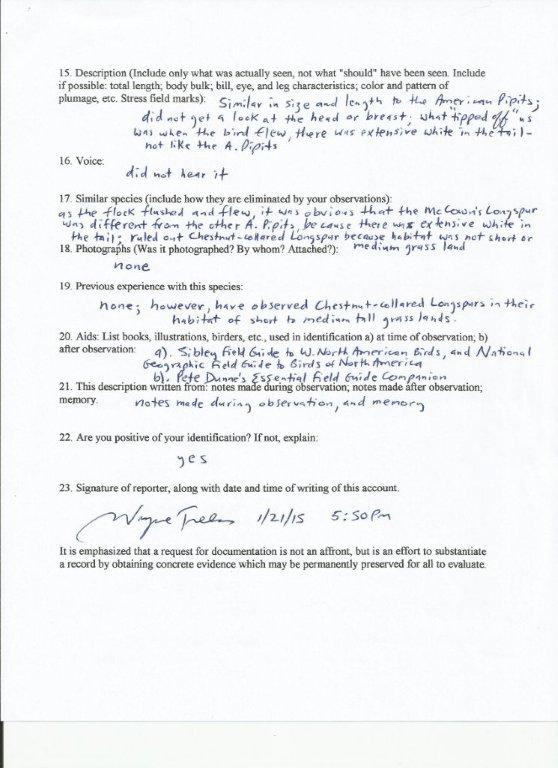 15. Description (Include only what was actually seen, not what "should" have been seen. Include
if possible: total length; body bulk; bill, eye, and leg characteristics; color and pattern of
plumage, etc. Stress field marks): Similar in size and length to the American Pipits;
did not get a look at the head or breast; what "tipped off" us
was when the bird flew, there was extensive white in the tail-
not like the A. Pipits
16. Voice:
did not hear it
17. Similar species (include how they are eliminated by your observations):
as the flock flushed and flew, it was obvious that the McCown's Longspur
was different from the other A. Pipits, because there was extensive white in
the tail; ruled out Chestnut-collared Longspur because habitat was not short or
18. Photographs (Was it photographed? By whom? Attached?): medium grass land
none
19. Previous experience with this species:
none; however, have observed Chestnut-collared Longspurs in their
habitat of short to medium tall grass lands.
20. Aids: List books, illustrations, birders, etc., used in identification a) at time of observation; b)
after observation: a). Sibley Field Guide to W. North American Birds, and National
Geographic Field Guide to Birds of North America
b). Pete Dunne's Essential Field Guide Companion
21. This description written from: notes made during observation; notes made after observation;
memory. notes made during observation, and memory
22. Are you positive of your identification? If not, explain:
yes
23. Signature of reporter, along with date and time of writing of this account.
Wayne 1/21/15 5:50 Pm
It is emphasized that a request for documentation is not an affront, but is an effort to substantiate
a record by obtaining concrete evidence which may be permanently preserved for all to evaluate.